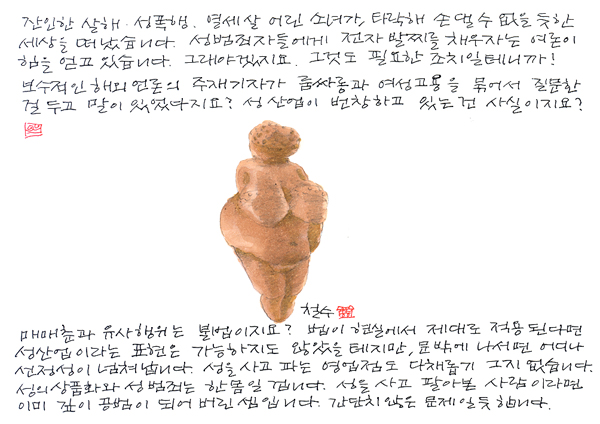 잔인한 살해·성폭행. 열세살 어린 소녀가, 타락해 손 댈 수 없을 듯한
세상을 떠났습니다. 성범죄자들에게 전자발찌를 채우자는 여론이
힘을 얻고 있습니다. 그래야겠지요. 그것도 필요한 조치일테니까!
보수적인 해외언론의 주재기자가 룸싸롱과 여성고용을 묶어서 질문한
걸 두고 말이 있었다지요? 성산업이 번창하고 있는건 사실이지요?
철수
매매춘과 유사행위는 불법이지요? 법이 현실에서 제대로 적용된다면
성산업이라는 표현은 가능하지도 않았을 테지만, 문밖에 나서면 어디나
선정성이 넘쳐납니다. 성을 사고 파는 영업점도 다채롭기 그지 없습니다.
성의 상품화와 성범죄는 한몸일 겁니다. 성을 사고 팔아본 사람이라면
이미 깊이 공범이 되어 버린 셈입니다. 간단치 않은 문제일듯 합니다.